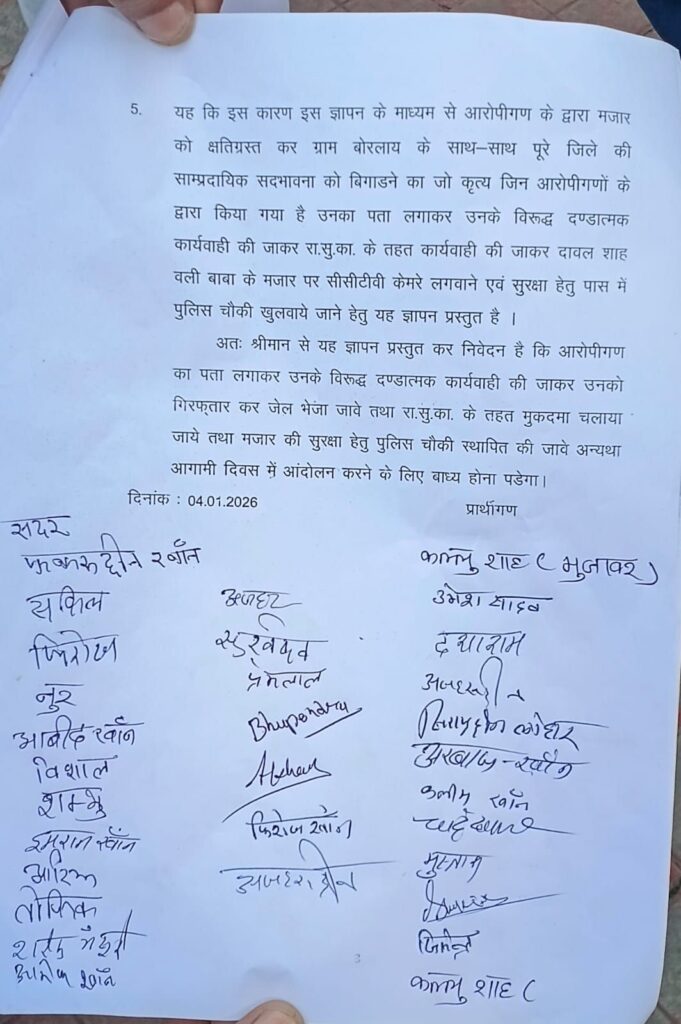 5. यह कि इस कारण इस ज्ञापन के माध्यम से आरोपीगण के द्वारा मजार
को क्षतिग्रस्त कर ग्राम बोरलाय के साथ–साथ पूरे जिले की
साम्प्रदायिक सदभावना को बिगाडने का जो कृत्य जिन आरोपीगणों के
द्वारा किया गया है उनका पता लगाकर उनके विरूद्ध दण्डात्मक
कार्यवाही की जाकर रा.सु.का. के तहत कार्यवाही की जाकर दावल शाह
वली बाबा के मजार पर सीसीटीवी केमरे लगवाने एवं सुरक्षा हेतु पास में
पुलिस चौकी खुलवाये जाने हेतु यह ज्ञापन प्रस्तुत है ।
अतः श्रीमान से यह ज्ञापन प्रस्तुत कर निवेदन है कि आरोपीगण
का पता लगाकर उनके विरूद्ध दण्डात्मक कार्यवाही की जाकर उनको
गिरफ्तार कर जेल भेजा जावे तथा रा.सु.का. के तहत मुकदमा चलाया
जाये तथा मजार की सुरक्षा हेतु पुलिस चौकी स्थापित की जावे अन्यथा
आगामी दिवस में आंदोलन करने के लिए बाध्य होना पडेगा।
दिनांक : 04.01.2026 प्रार्थीगण
सदर
खाँन
सकिल
फिरोज
नुर
आबीद खाँन
विशाल
शम्भु
इमरान खाँन
तोफिक
खाँन
अजहर
प्रेमलाल
Bhupendra
फिरोज खाँन
कालु शाह ( मुजावर )
उमेश यादव
दयाराम
कलीम खाँन
जितेन्द्र
कालु शाह (
3